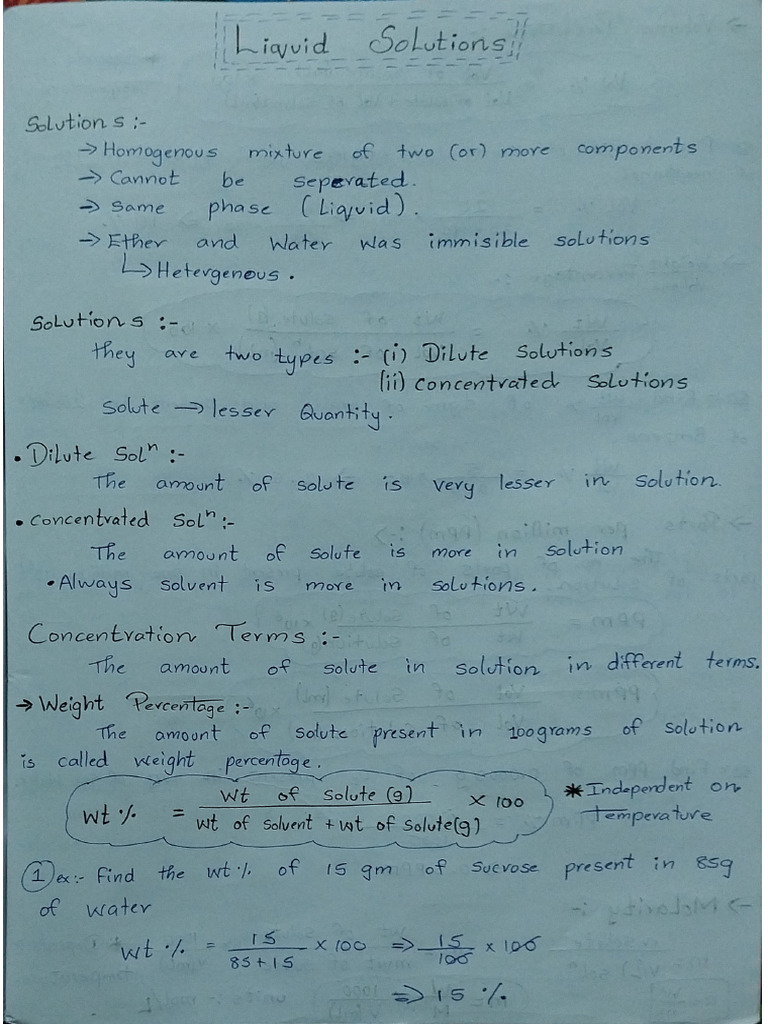 Liquid Solutions
Solutions :-
→ Homogenous mixture of two (or) more components
→ Cannot be seperated.
→ Same phase (Liquid).
→ Ether and Water was immisible solutions
↳ Hetergenous.
Solutions :-
they are two types :- (i) Dilute Solutions
(ii) concentrated Solutions
Solute → lesser Quantity.
• Dilute Solⁿ :-
The amount of solute is very lesser in solution.
• concentrated Solⁿ :-
The amount of solute is more in solution
• Always solvent is more in solutions.
Concentration Terms :-
The amount of solute in solution in different terms.
→ Weight Percentage :-
The amount of solute present in 100grams of solution
is called weight percentage.
wt % = wt of solute (g) / wt of solvent + wt of solute(g) × 100
* Independent on
Temperature
① ex:- Find the wt% of 15 gm of sucrose present in 85g
of water
wt % = 15 / 85+15 × 100 => 15 / 100 × 100
=> 15 %